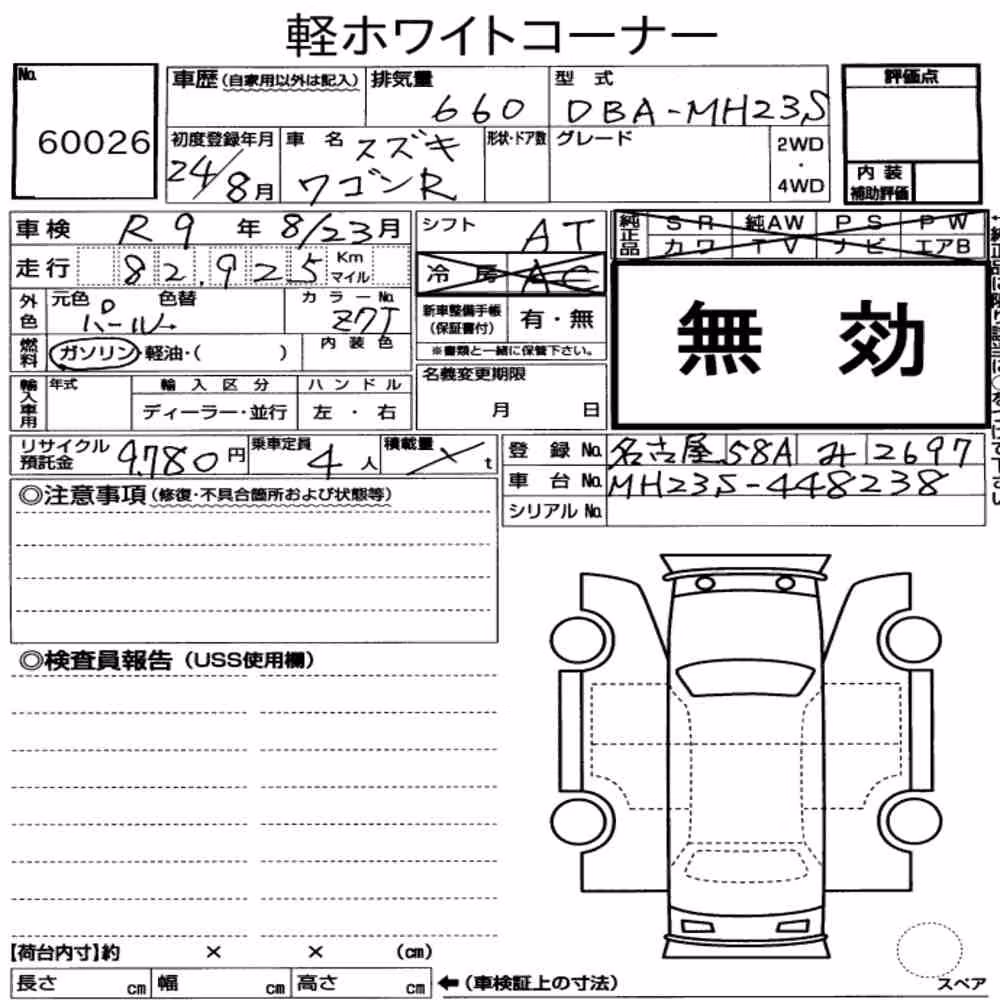 軽ホワイトコーナー
No. 60026
車歴 (自家用以外は記入) 排気量 660 型式 DBA-MH23S
評価点
初度登録年月 24/8月 車名 スズキ ワゴンR 形状・ドア数 グレード 2WD・4WD
内装補助評価
車検 R9年 8/23月 シフト AT
純正品 SR 純AW PS PW
カワ TV ナビ エアB
走行 82,925 Km マイル 冷房 AC
無効
外色 元色 パール 色替 カラーNo. Z7T
新車整備手帳 (保証書付) 有・無
※書類と一緒に保管下さい。
燃料 ガソリン・軽油・( ) 内装色
輸入車用 年式 輸入区分 ハンドル
ディーラー・並行 左・右
名義変更期限 月 日
リサイクル預託金 9,780円 乗車定員 4人 積載量 t
登録No. 名古屋 58A み 2697
車台No. MH23S-448238
シリアルNo.
◎注意事項 (修復・不具合箇所および状態等)
◎検査員報告 (USS使用欄)
【荷台内寸】約 × × (cm)
長さ cm 幅 cm 高さ cm ←(車検証上の寸法)
スペア